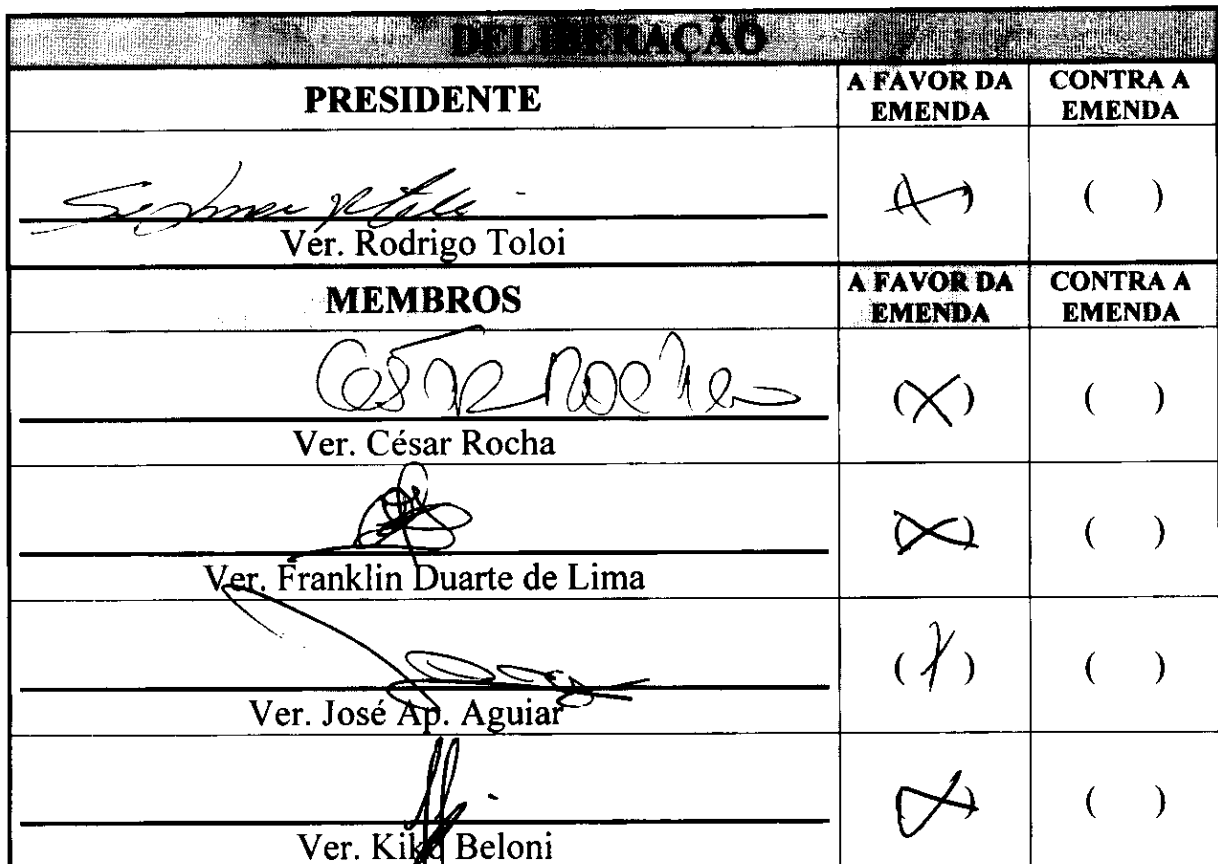 DELIBERAÇÃO
PRESIDENTE
A FAVOR DA EMENDA
CONTRA A EMENDA
Ver. Rodrigo Toloi
(X)
( )
MEMBROS
A FAVOR DA EMENDA
CONTRA A EMENDA
César Rocha
Ver. César Rocha
(X)
( )
Ver. Franklin Duarte de Lima
(X)
( )
Ver. José Ap. Aguiar
(X)
( )
Ver. Kiko Beloni
(X)
( )